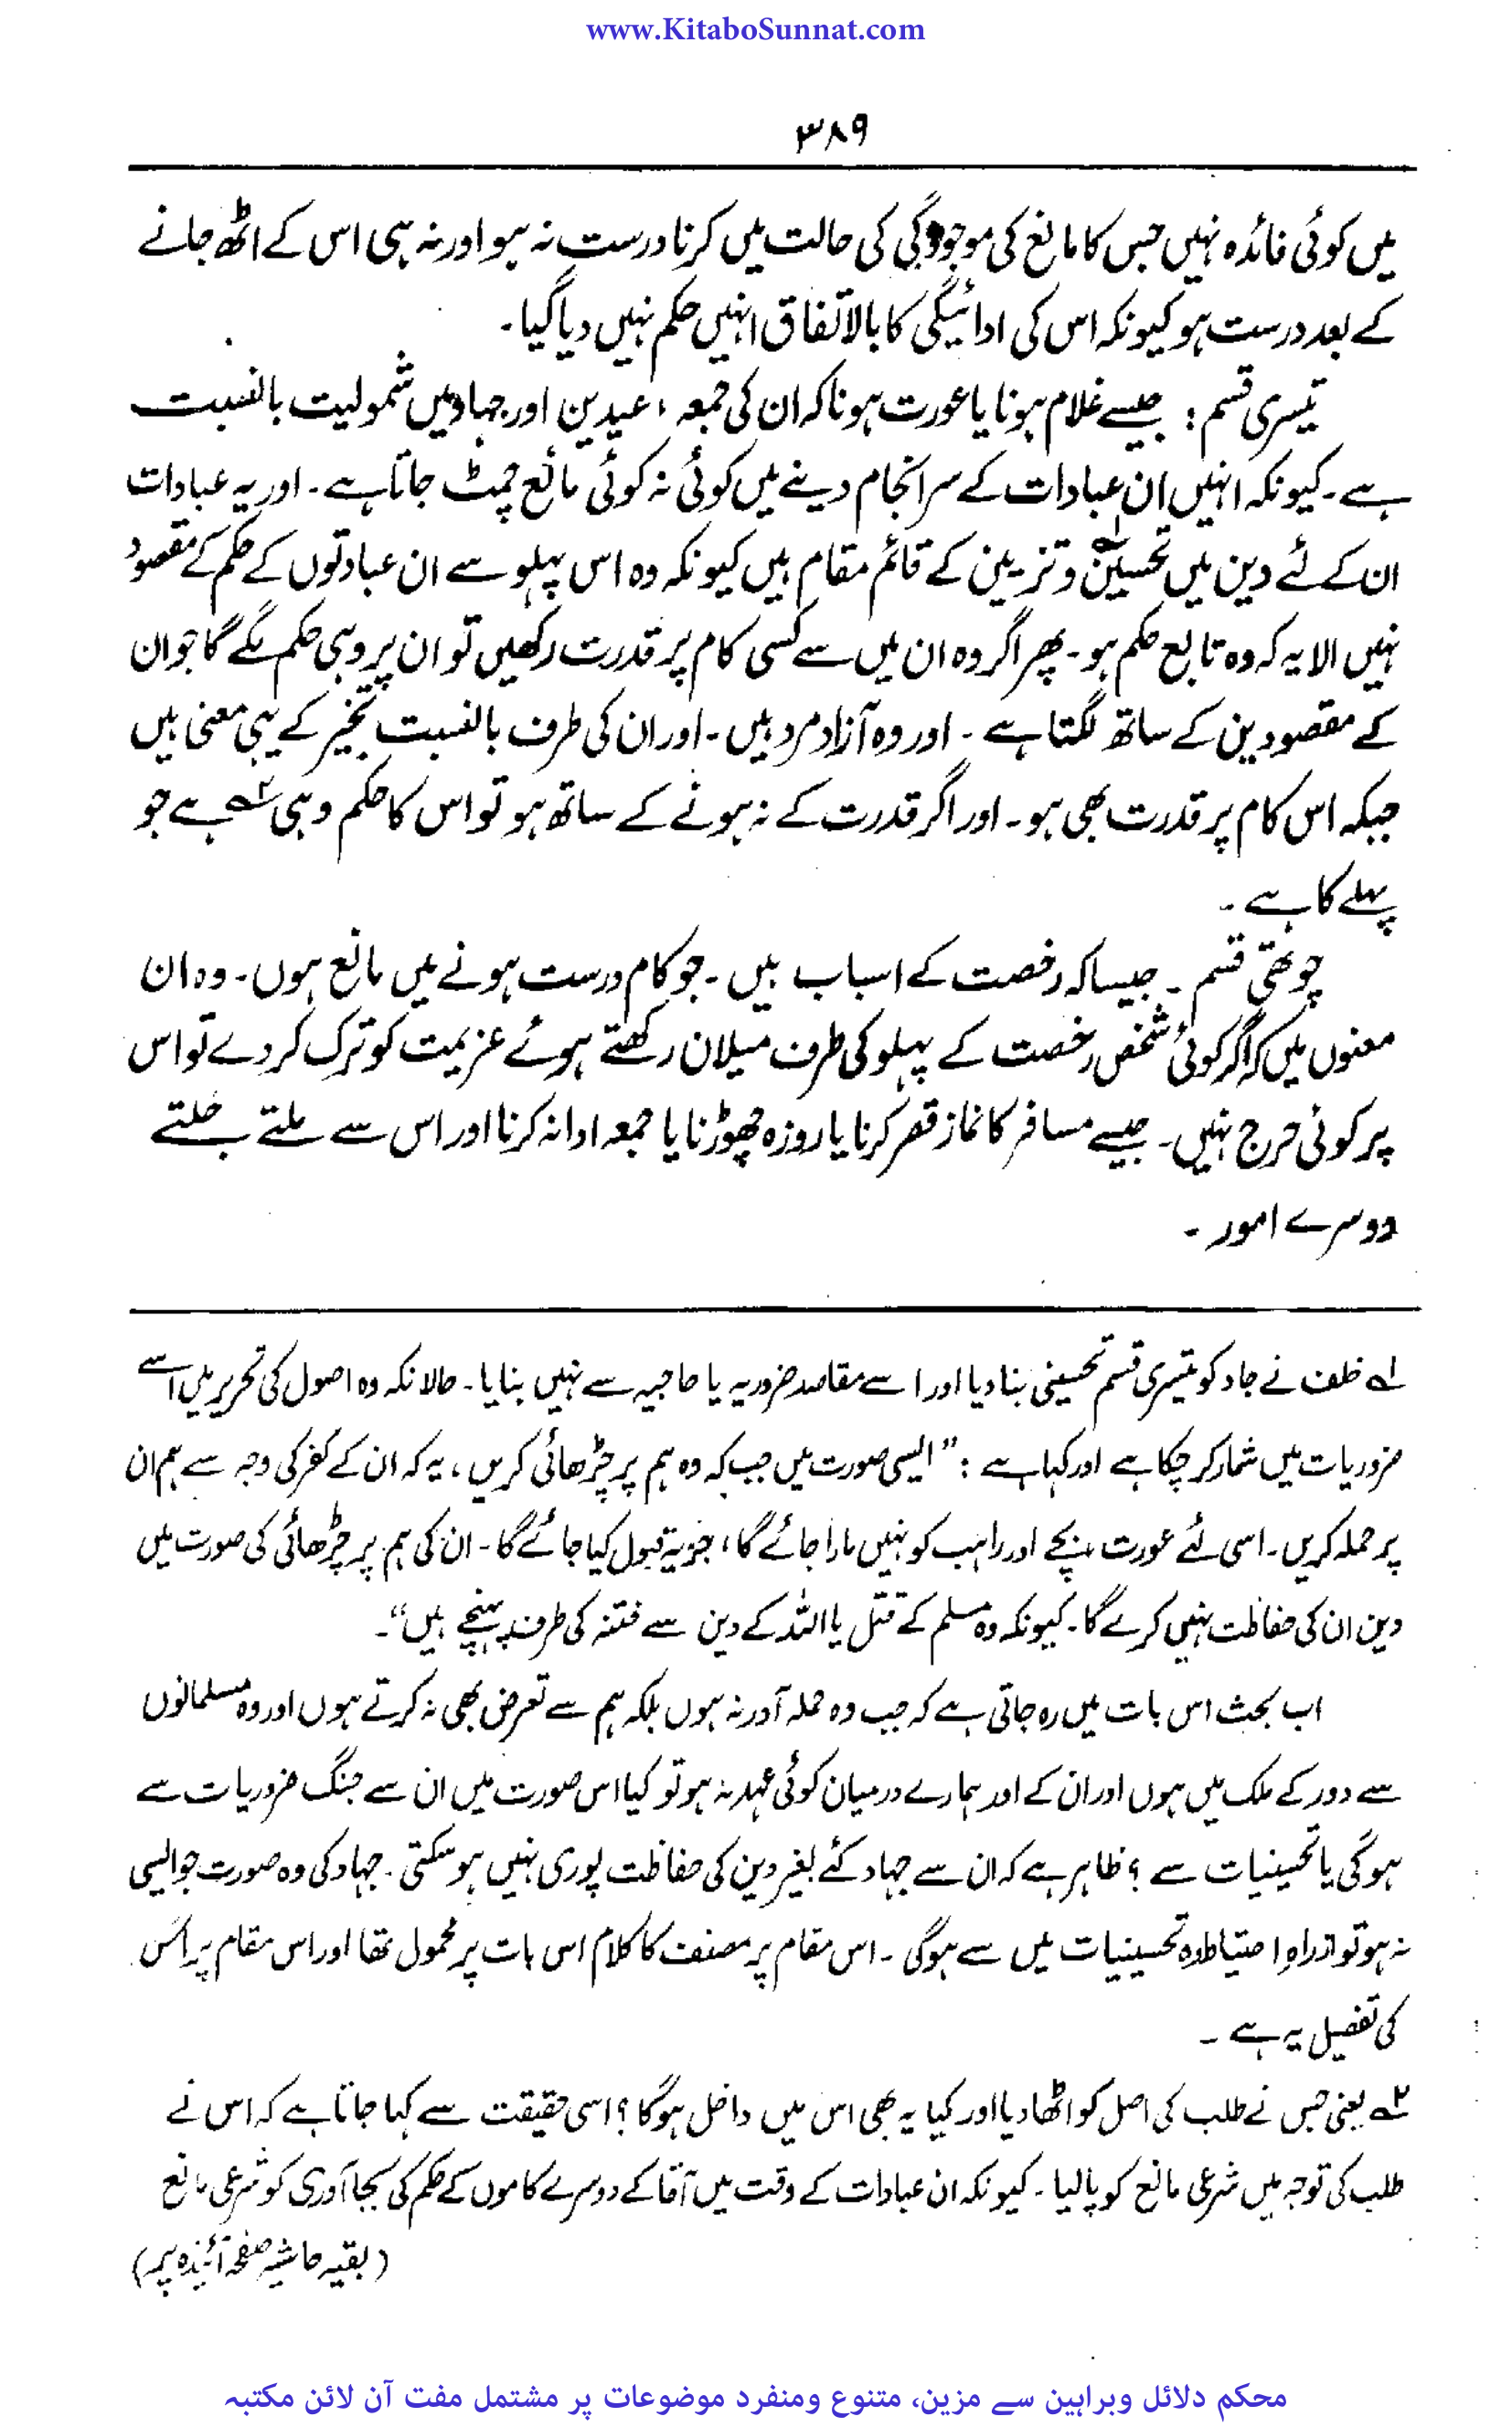 www.KitaboSunnat.com
۳۸۹
میں کوئی فائدہ نہیں جس کا مانع کی موجودگی کی حالت میں کرنا درست نہ ہو اور نہ ہی اس کے اٹھ جانے
کے بعد درست ہو کیونکہ اس کی ادائیگی کا بالاتفاق انہیں حکم نہیں دیا گیا۔
تیسری قسم : جیسے غلام ہونا یا عورت ہونا کہ ان کی جمعہ ، عیدین اور جہاد میں شمولیت بالنسبت
ہے۔ کیونکہ انہیں ان عبادات کے سرانجام دینے میں کوئی نہ کوئی مانع چمٹ جاتا ہے۔ اور یہ عبادات
ان کے لئے دین میں تحسین۱؎ و تزیین کے قائم مقام ہیں کیونکہ وہ اس پہلو سے ان عبادتوں کے حکم کے مقصود
نہیں الا یہ کہ وہ تابع حکم ہو۔ پھر اگر وہ ان میں سے کسی کام پر قدرت رکھیں تو ان پر وہی حکم لگے گا جو ان
کے مقصودین کے ساتھ لگتا ہے ۔ اور وہ آزاد مرد ہیں۔ اور ان کی طرف بالنسبت تخییر کے یہی معنی ہیں
جبکہ اس کام پر قدرت بھی ہو۔ اور اگر قدرت کے نہ ہونے کے ساتھ ہو تو اس کا حکم وہی۲؎ ہے جو
پہلے کا ہے ۔
چوتھی قسم ۔ جیسا کہ رخصت کے اسباب ہیں۔ جو کام درست ہونے میں مانع ہوں۔ وہ ان
معنوں میں کہ اگر کوئی شخص رخصت کے پہلو کی طرف میلان رکھتے ہوئے عزیمت کو ترک کر دے تو اس
پر کوئی حرج نہیں۔ جیسے مسافر کا نماز قصر کرنا یا روزہ چھوڑنا یا جمعہ ادا نہ کرنا اور اس سے ملتے جلتے
دوسرے امور ۔
۱؎ خلف نے جاد کو تیسری قسم تحسینی بنا دیا اور اسے مقاصد ضروریہ یا حاجیہ سے نہیں بنایا۔ حالانکہ وہ اصول کی تحریر میں اسے
ضروریات میں شمار کر چکا ہے اور کہا ہے : ”ایسی صورت میں جب کہ وہ ہم پر چڑھائی کریں ، یہ کہ ان کے کفر کی وجہ سے ہم ان
پر حملہ کریں۔ اسی لئے عورت بچے اور راہب کو نہیں مارا جائے گا ، جزیہ قبول کیا جائے گا۔ ان کی ہم پر چڑھائی کی صورت میں
دین ان کی حفاظت نہیں کرے گا۔ کیونکہ وہ مسلم کے قتل یا اللہ کے دین سے فتنہ کی طرف پہنچے ہیں“۔
اب بحث اس بات میں رہ جاتی ہے کہ جب وہ حملہ آور نہ ہوں بلکہ ہم سے تعرض بھی نہ کرتے ہوں اور وہ مسلمانوں
سے دور کے ملک میں ہوں اور ان کے اور ہمارے درمیان کوئی عہد نہ ہو تو کیا اس صورت میں ان سے جنگ ضروریات سے
ہوگی یا تحسینیات سے ؟ ظاہر ہے کہ ان سے جہاد کئے بغیر دین کی حفاظت پوری نہیں ہو سکتی۔ جہاد کی وہ صورت جو ایسی
نہ ہو تو ازراہ احتیاط وہ تحسینیات میں سے ہوگی ۔ اس مقام پر مصنف کا کلام اس بات پر محمول تھا اور اس مقام پر اس
کی تفصیل یہ ہے ۔
۲؎ یعنی جس نے طلب کی اصل کو اٹھا دیا اور کیا یہ بھی اس میں داخل ہوگا ؟ اسی حقیقت سے کہا جاتا ہے کہ اس نے
طلب کی توجہ میں شرعی مانع کو پا لیا ۔ کیونکہ ان عبادات کے وقت میں آقا کے دوسرے کاموں کے حکم کی بجا آوری کو شرعی مانع
(بقیہ حاشیہ صفحہ آئندہ پر)
محکم دلائل وبراہین سے مزین، متنوع ومنفرد موضوعات پر مشتمل مفت آن لائن مکتبہ